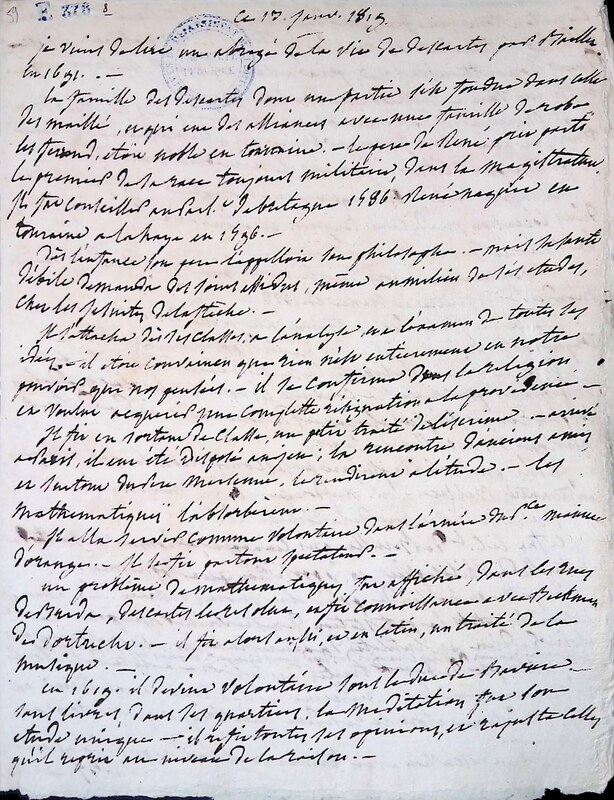 59 E 378 8
Ce 17. janv. 1819.
je viens de lire un abrégé de la vie de descartes par Baillet
en 1691. —
la famille des descartes dont une partie s'est fondue dans celle
des maillé, et qui eut des alliances avec une famille de robe
les ferrand, etoit noble en touraine. — le pere de René prit parti
le premier de la race toujours militaire, dans la magistrature.
Il fut Conseiller au Parl.t de bretagne 1586. René naquit en
touraine a la haye en 1596. —
Dès l'enfance son pere l'appelloit son philosophe. — mais sa santé
débile demanda des soins assidus, même au milieu de ses etudes,
chez les jesuites de la fleche. —
Il s'attacha dès ses classes, a l'analyse, et a l'examen de toutes les
idées. — il etoit convaincu que rien n'est entierement en notre
pouvoir que nos pensées. — il se conforma dans la religion
et voulut acquerir une complette résignation a la providence —
Il fit en sortant de classe, un petit traité de l'escrime. — arrivé
a Paris, il eut été disposé au jeu; la rencontre d'anciens amis
et surtout du Pere Mersenne, le rendirent a l'étude. — les
mathematiques l'absorberent. —
Il alla servir comme volontaire dans l'armée du P.ce maurice
d'orange. — Il se fit partout spectateur. —
un problême de mathematiques, fut affiché, dans les rues
de Breda, descartes le resolut, et fit connoissance avec Beckman
de dortrecht. — il fit alors aussi, et en latin, un traité de la
musique. —
en 1619. il devint volontaire sous le duc de Baviere. —
sans livres, dans ses quartiers, la méditation fut son
etude unique — il refit toutes ses opinions, et rajusta celles
qu'il reprit au niveau de la raison. —